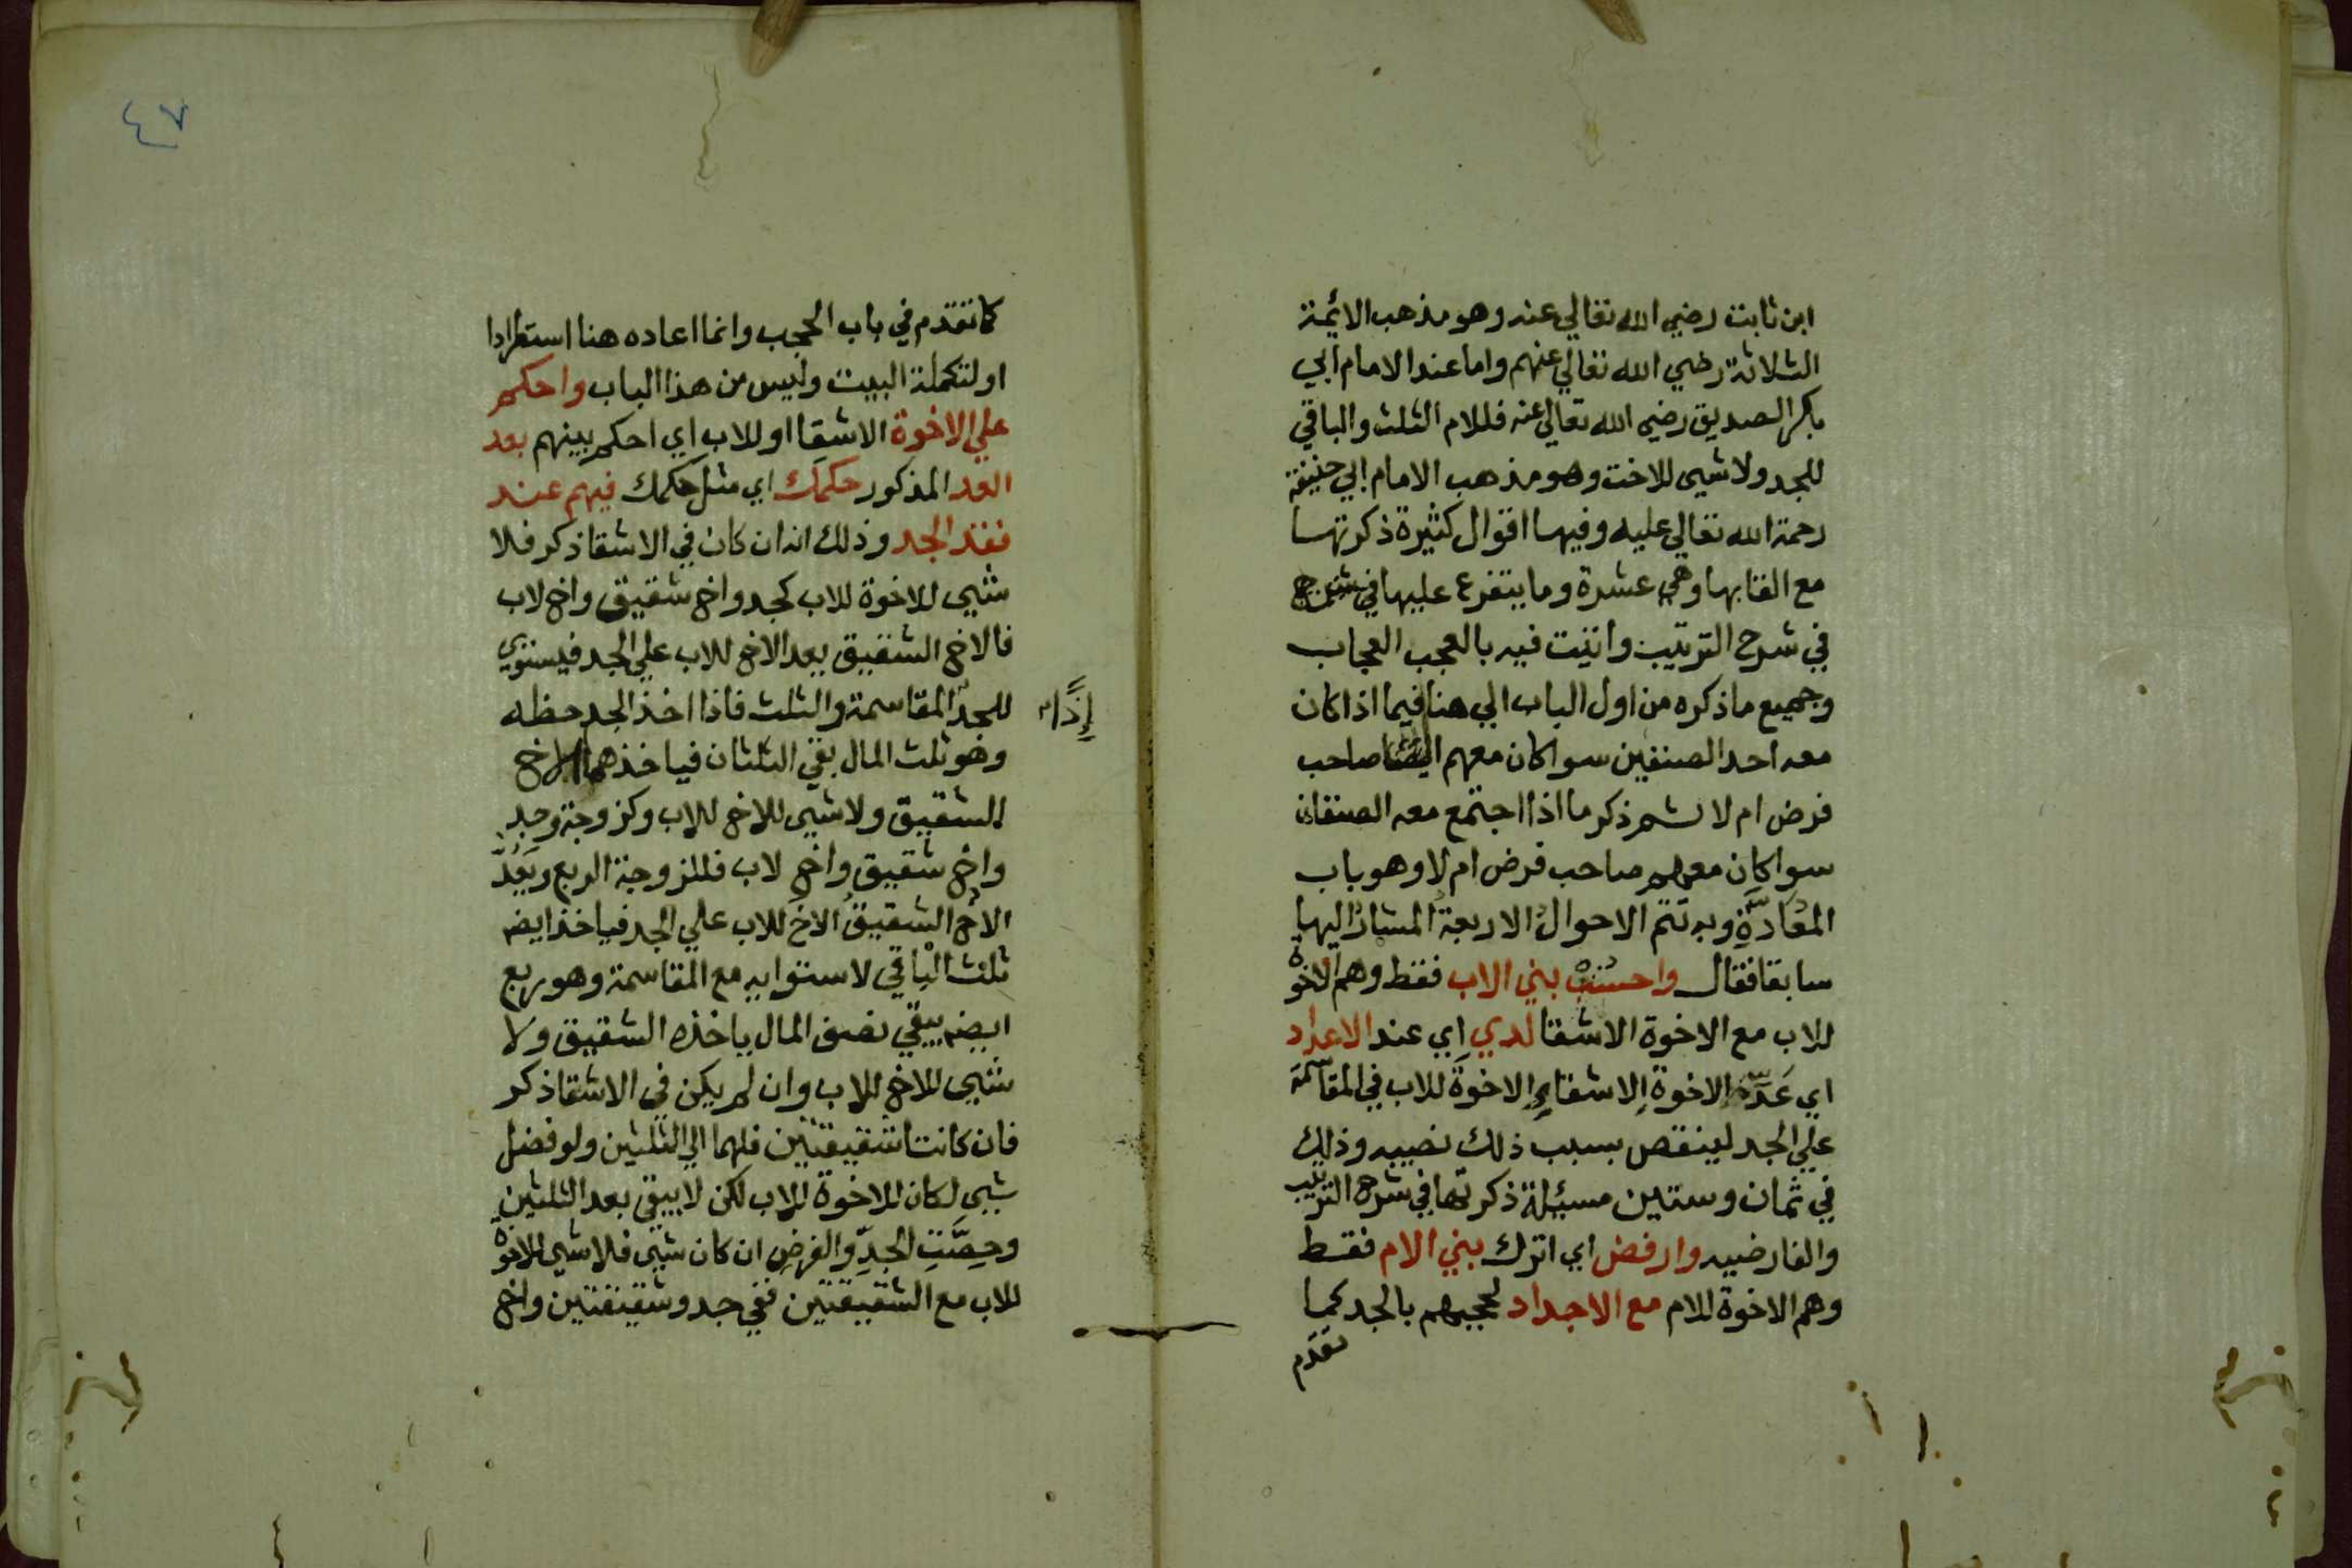 ابن ثابت رضي الله تعالي عنه وهو مذهب الائمة
الثلاثة رضي الله تعالي عنهم واما عند الامام ابي
بكر الصديق رضي الله تعالي عنه فللام الثلث والباقي
للجد ولا شيى للاخت وهو مذهب الامام ابي حنيفة
رحمة الله تعالي عليه وفيها اقوال كثيرة ذكرتها
مع القابها وهي عشرة وما يتفرع عليها في
في شرح الترتيب واتيت فيه بالعجب العجاب
وجميع ما ذكره من اول الباب الي هنا فيما اذا كان
معه احد الصنفين سوا كان معهم ايضا صاحب
فرض ام لا ثم ذكر ما اذا اجتمع معه الصنفان
سوا كان معهم صاحب فرض ام لا وهو باب
المعادَّةِ وبه تتم الاحوالُ الاربعةُ المشارُ اليها
سابقا فقال واحسُبْ بني الاب فقط وهم الاخوة
للاب مع الاخوة الاشقا لدي اي عند الاعداد
اي عَدِّ الاخوة الاشقاءِ الاخوةَ للاب في المقاسمة
علي الجد لينقص بسبب ذلك نصيبه وذلك
في ثمان وستين مسئلة ذكرتها في شرح الترتيب
والفارضيه وارفض اي اترك بني الام فقط
وهم الاخوة للام مع الاجداد لحجبهم بالجد كما
تقدم
٤٧
كما تقدم في باب الحجب وانما اعاده هنا استطرادا
او لتكملة البيت وليس من هذا الباب واحكم
علي الاخوة الاشقا او للاب اي احكم بينهم بعد
العد المذكور حكمك اي مثل حكمك فيهم عند
فقد الجد وذلك انه ان كان في الاشقا ذكر فلا
شيى للاخوة للاب كجد واخ شقيق واخ لاب
فالاخ الشقيق يعد الاخ للاب علي الجد فيستوي
للجدّ المقاسمة والثلث فاذا اخذ الجد حظه
إذًا
وهو ثلث المال بقي الثلثان فياخذهما الاخ
الشقيق ولا شيى للاخ للاب وكزوجة وجد
واخ شقيق واخ لاب فللزوجة الربع ويَعُدّ
الاخُ الشقيقُ الاخَ للاب علي الجد فياخذ ايضا
ثلث الباقي لاستوايه مع المقاسمة وهو ربع
ايضا يبقي نصف المال ياخذه الشقيق ولا
شيى للاخ للاب وان لم يكن في الاشقا ذكر
فان كانتا شقيقتين فلهما الي الثلثين ولو فضل
شيى لكان للاخوة للاب لكن لا يبقي بعد الثلثين
وحِصَّتِ الجدِّ والفرضِ ان كان شيى فلا شيى للاخوة
للاب مع الشقيقتين ففي جد وشقيقتين واخ